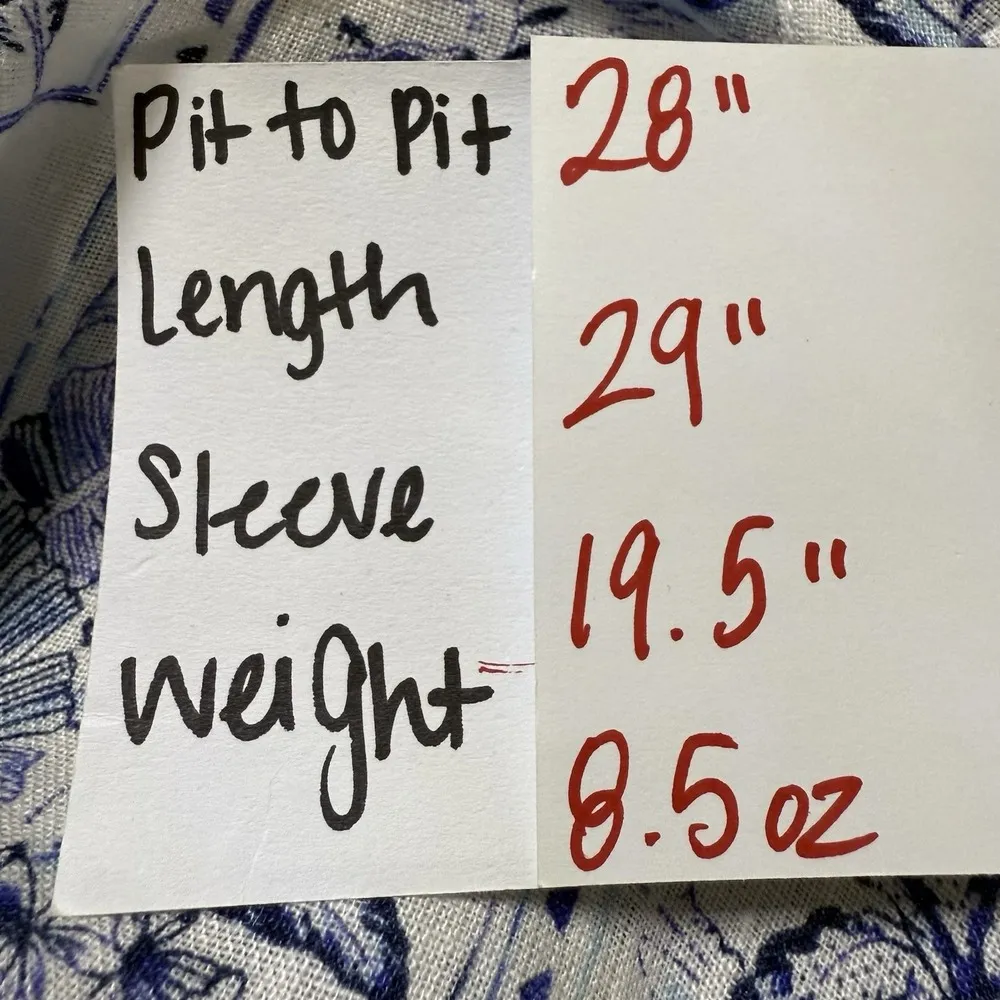 Pit to Pit 28"
Length 29"
Sleeve 19.5"
weight 8.5 oz